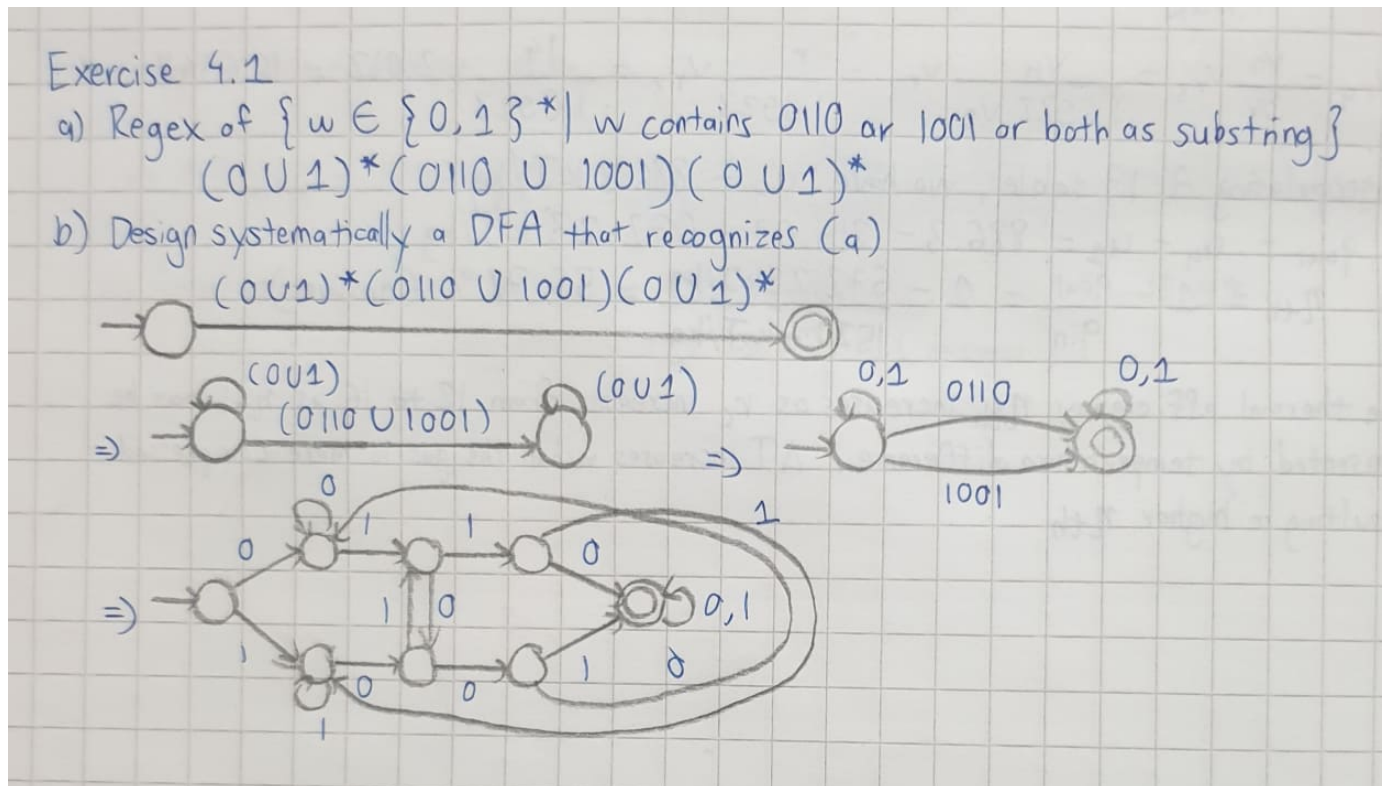 Exercise 4.1
a) Regex of { w ∈ {0,1}* | w contains 0110 or 1001 or both as substring }
(0 ∪ 1)* (0110 ∪ 1001) (0 ∪ 1)*
b) Design systematically a DFA that recognizes (a)
(0∪1)* (0110 ∪ 1001) (0 ∪ 1)*
(0∪1) (0∪1) 0,1 0110 0,1
(0110 ∪ 1001)
⇒ ⇒
1001
0
1 1 1
0 0
⇒ 1 0 0,1
1 1 0
0 0
1